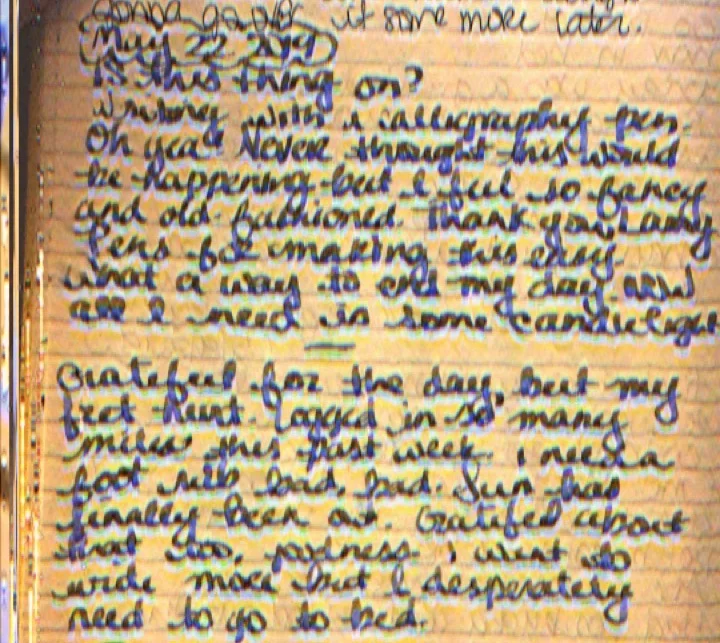 gonna go over it some more later.
May 22 2019
Is this thing on?
Writing with a calligraphy pen.
Oh yeah Never thought this would
be happening but I feel so fancy
and old-fashioned. Thank you, Lamy
Pens for making this easy.
What a way to end my day. Now
all I need is some candlelight
Grateful for the day, but my
feet hurt. Logged in so many
miles this past week. I need a
foot rub bad, bad. Sun has
finally been out. Grateful about
that too, goodness. I want to
write more but I desperately
need to go to bed.